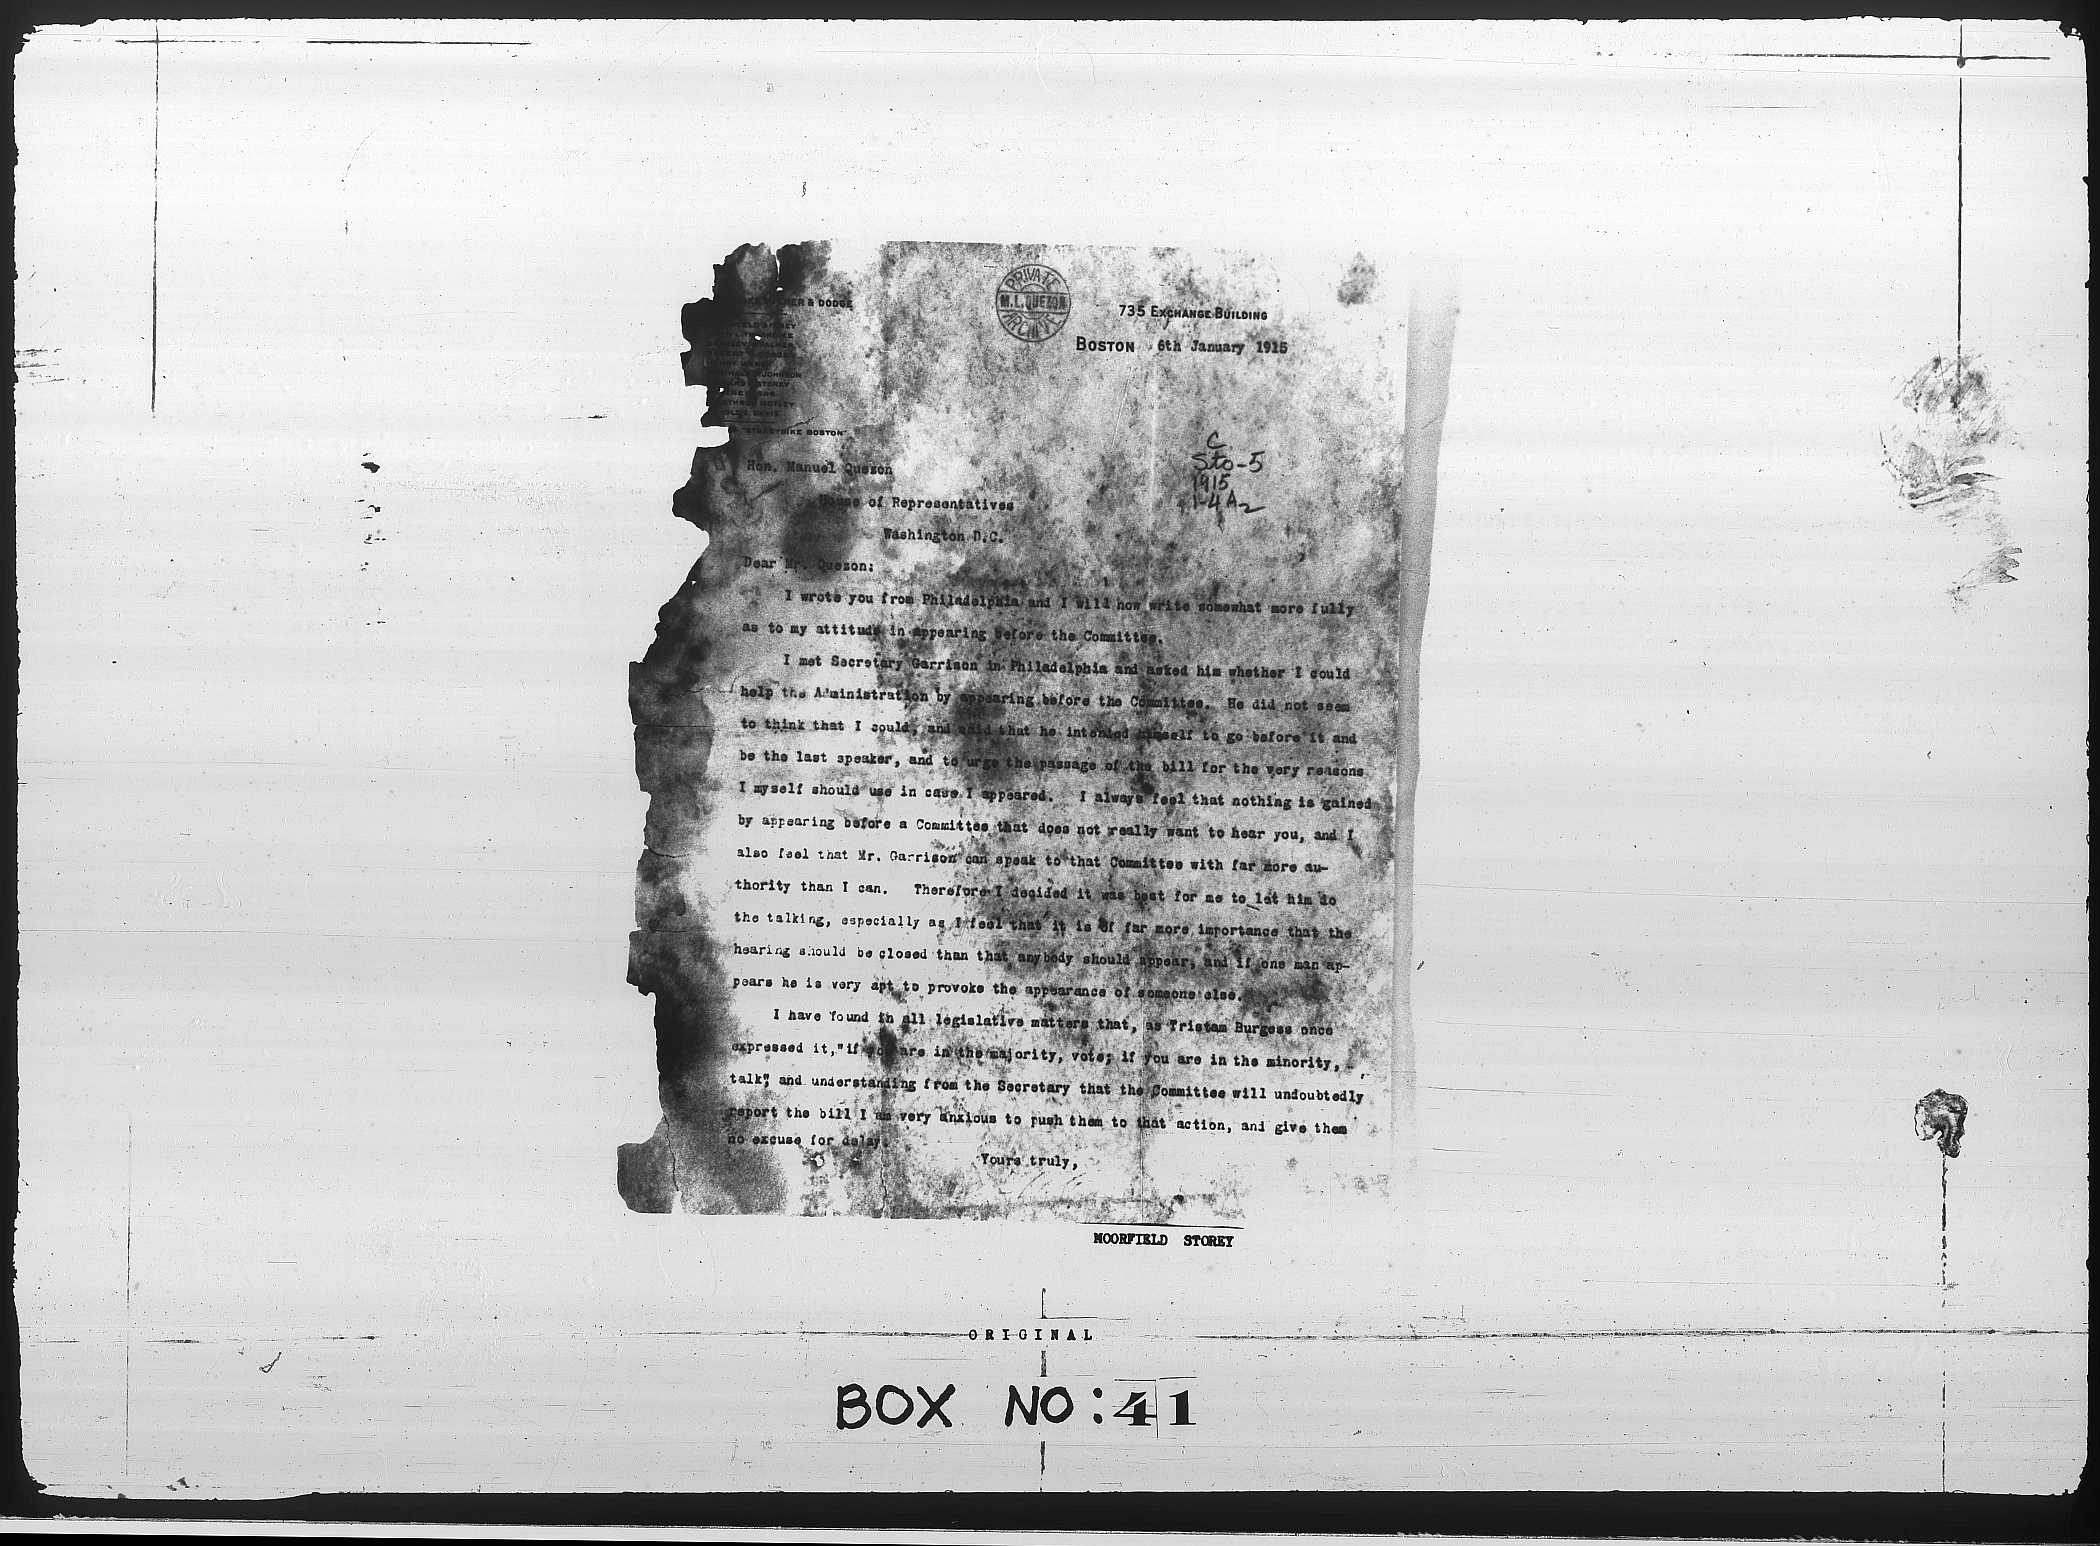 & DODGE
PRIVATE
M.L. QUEZON
ARCHIVE
735 EXCHANGE BUILDING
BOSTON 6th January 1915
JOHNSON
STOREY
MOTLEY
DAVIS
BOSTON"
C
Sto-5
1915
1-4A2
Hon. Manuel Quezon
House of Representatives
Washington D.C.
Dear Mr. Quezon:
I wrote you from Philadelphia and I will now write somewhat more fully
as to my attitude in appearing before the Committee.
I met Secretary Garrison in Philadelphia and asked him whether I could
help the Administration by appearing before the Committee. He did not seem
to think that I could, and said that he intended himself to go before it and
be the last speaker, and to urge the passage of the bill for the very reasons
I myself should use in case I appeared. I always feel that nothing is gained
by appearing before a Committee that does not really want to hear you, and I
also feel that Mr. Garrison can speak to that Committee with far more au-
thority than I can. Therefore I decided it was best for me to let him do
the talking, especially as I feel that it is of far more importance that the
hearing should be closed than that anybody should appear, and if one man ap-
pears he is very apt to provoke the appearance of someone else.
I have found in all legislative matters that, as Tristam Burgess once
expressed it,"if you are in the majority, vote; if you are in the minority,
talk", and understanding from the Secretary that the Committee will undoubtedly
report the bill I am very anxious to push them to that action, and give them
no excuse for delay.
Yours truly,
MOORFIELD STOREY
ORIGINAL
BOX NO: 41